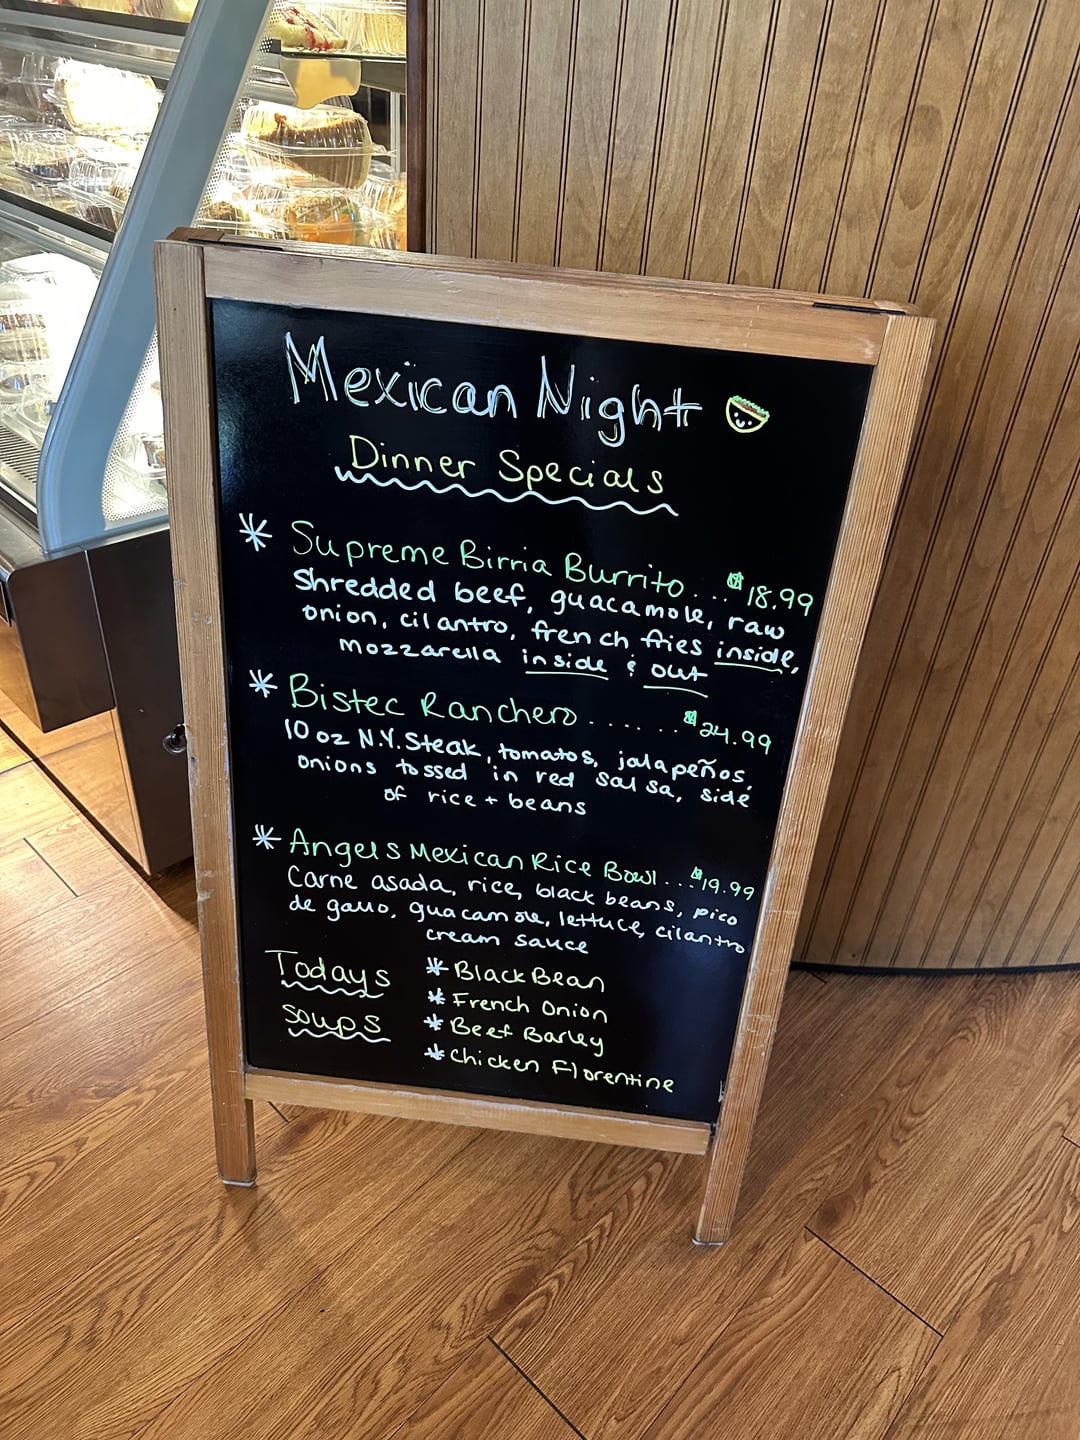 Mexican Night
Dinner Specials
* Supreme Birria Burrito... $18.99
Shredded beef, guacamole, raw
onion, cilantro, french fries inside,
mozzarella inside & out
* Bistec Ranchero...... $24.99
10 oz N.Y. Steak, tomatos, jalapeños,
onions tossed in red salsa, side
of rice + beans
* Angels Mexican Rice Bowl... $19.99
Carne asada, rice, black beans, pico
de gallo, guacamole, lettuce, cilantro
cream sauce
Todays
Soups
* Black Bean
* French Onion
* Beef Barley
* Chicken Florentine